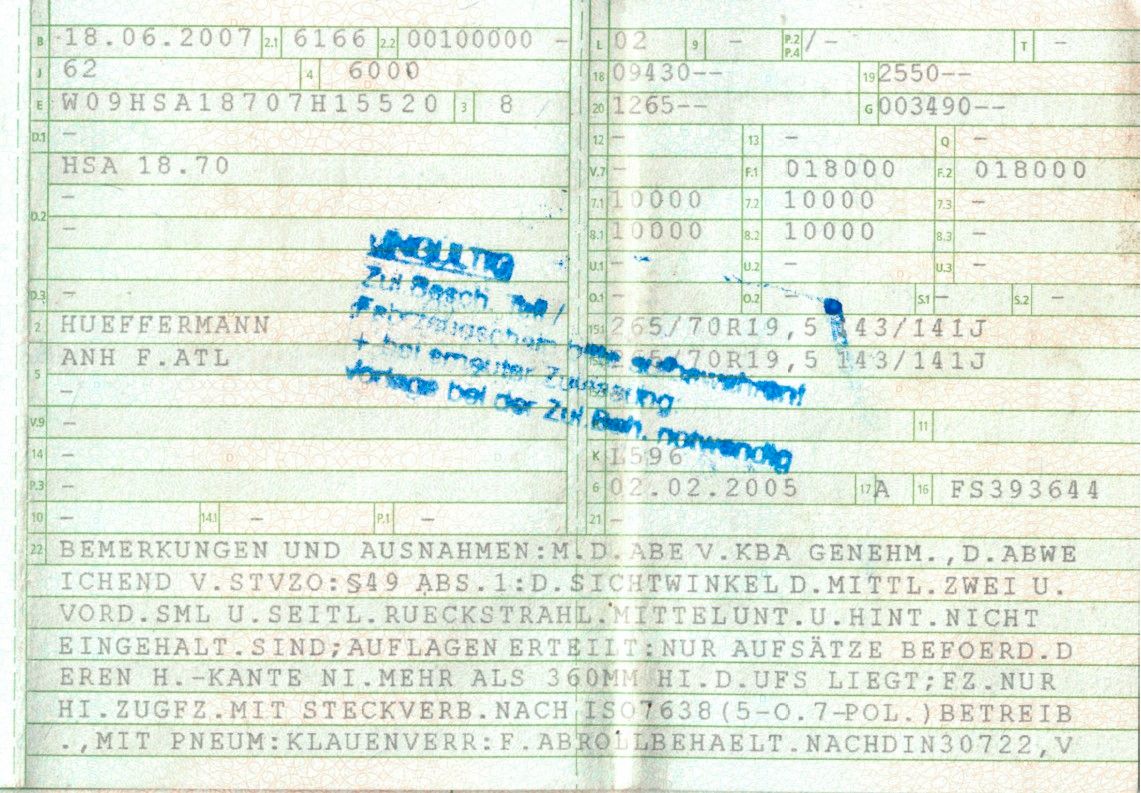 B 18.06.2007 2.1 6166 2.2 00100000 –
J 62 4 6000
E W09HSA18707H15520 3 8
D.1 –
HSA 18.70
–
D.2 –
D.3 –
2 HUEFFERMANN
ANH F.ATL
5 –
V.9 –
14 –
P.3 –
10 – 14.1 – P.1 –
L 02 9 – P.2 P.4 /– T –
18 09430–– 19 2550––
20 1265–– G 003490––
12 – 13 – Q –
V.7 – F.1 018000 F.2 018000
7.1 10000 7.2 10000 7.3 –
8.1 10000 8.2 10000 8.3 –
U.1 – U.2 – U.3 –
O.1 – O.2 – S.1 – S.2 –
15.1 265/70R19,5 143/141J
265/70R19,5 143/141J
11
K L596
6 02.02.2005 17 A 16 FS393644
21 –
UNGÜLTIG
Zul.Besch. Teil I
Fahrzeugschein bitte aufbewahren!
+ bei erneuter Zulassung
Vorlage bei der Zul.Beh. notwendig
22 BEMERKUNGEN UND AUSNAHMEN:M.D.ABE V.KBA GENEHM.,D.ABWE
ICHEND V.STVZO:§49 ABS.1:D.SICHTWINKEL D.MITTL.ZWEI U.
VORD.SML U.SEITL.RUECKSTRAHL.MITTELUNT.U.HINT.NICHT
EINGEHALT.SIND;AUFLAGEN ERTEILT:NUR AUFSÄTZE BEFOERD.D
EREN H.-KANTE NI.MEHR ALS 360MM HI.D.UFS LIEGT;FZ.NUR
HI.ZUGFZ.MIT STECKVERB.NACH ISO7638(5-O.7-POL.)BETREIB
.,MIT PNEUM:KLAUENVERR:F.ABROLLBEHAELT.NACHDIN30722,V